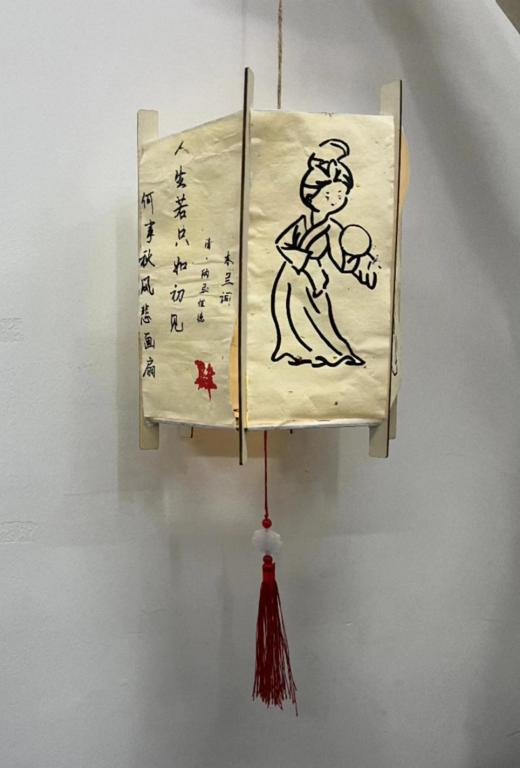 木兰词
清·纳兰性德
人生若只如初见
何事秋风悲画扇